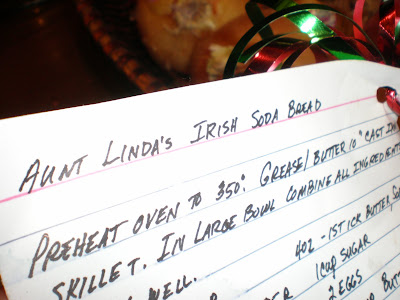 AUNT LINDA'S IRISH SODA BREAD
PREHEAT OVEN TO 350°. GREASE/BUTTER 10" CAST
SKILLET. IN LARGE BOWL COMBINE ALL INGREDIENTS
WELL. 4OZ - 1 STICK BUTTER,
1 CUP SUGAR
2 EGGS